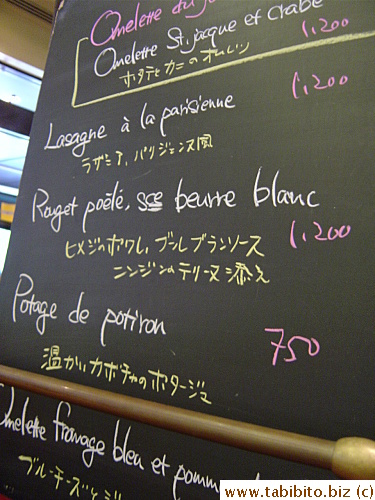 Omelette du jo
Omelette St. jacque et Crabe
1,200
ホタテとカニのオムレツ
Lasagne à la parisienne
1,200
ラザニア、パリジェンヌ風
Rouget poêlé, sce beurre blanc
ヒメジのポワレ、ブールブランソース
1,200
ニンジンのテリーヌ添え
Potage de potiron
750
温かいカボチャのポタージュ
Omelette fromage bleu et pomme
ブルーチーズと
www.tabibito.biz (c)